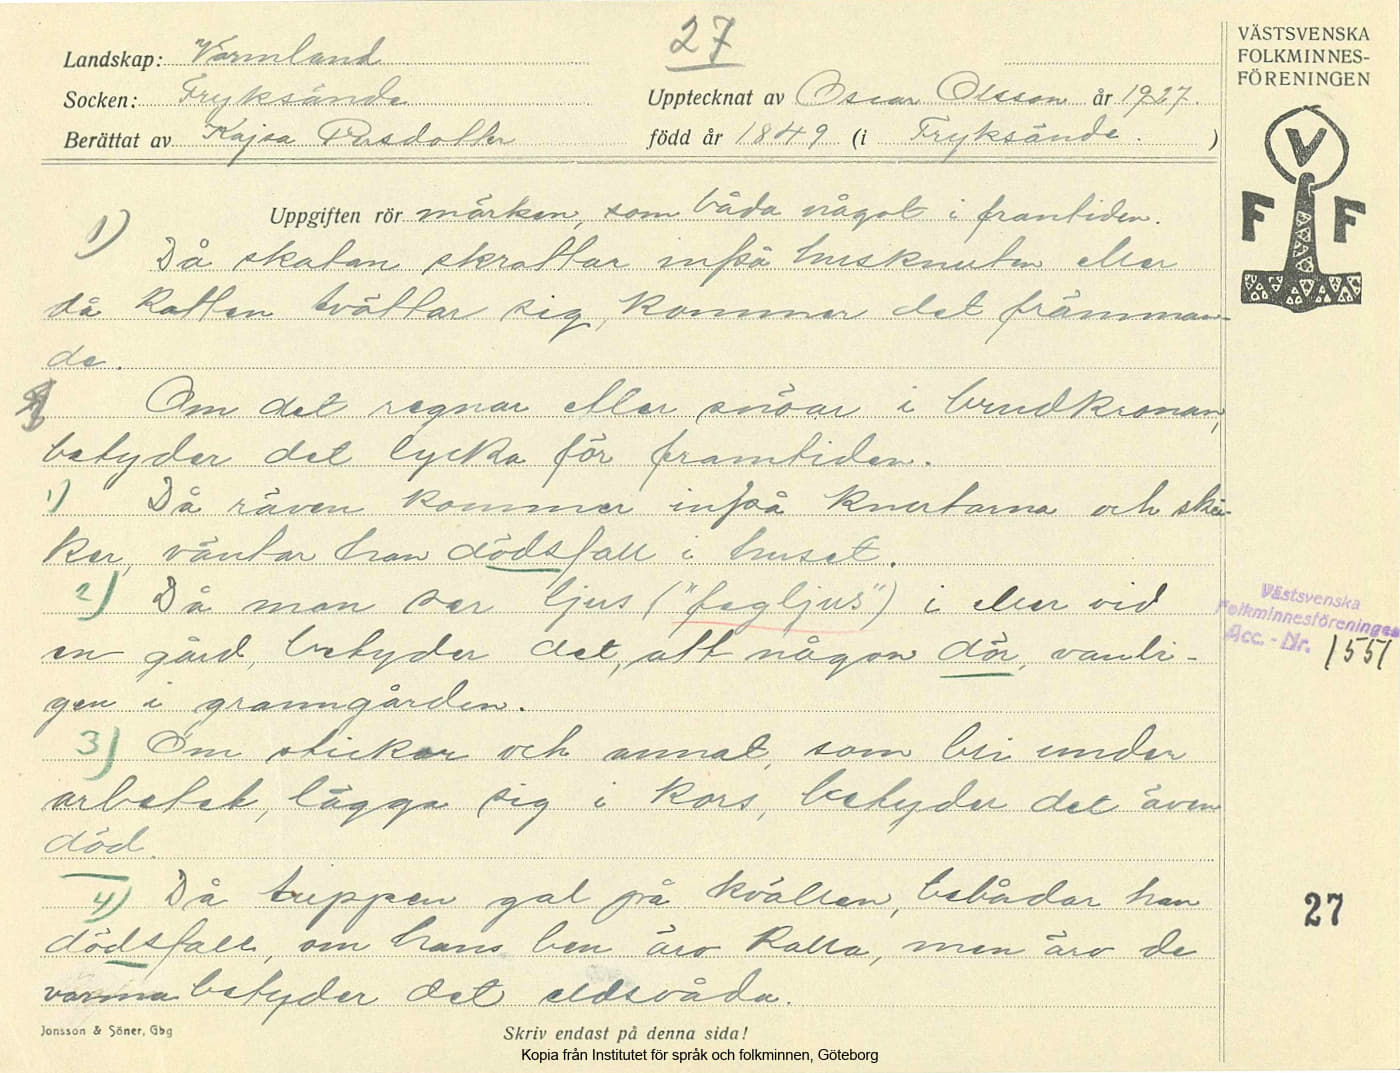 27
Landskap: Värmland
Socken: Fryksände
Upptecknat av Oscar Olsson år 1927.
Berättat av Kajsa Persdotter
född år 1849 (i Fryksände. )
VÄSTSVENSKA
FOLKMINNES-
FÖRENINGEN
V
F F
Uppgiften rör märken, som båda något i framtiden.
1) Då skatan skrattar inpå husknuten eller
då katten tvättar sig, kommer det främman-
de.
Om det regnar eller snöar i brudkronan,
betyder det lycka för framtiden.
1) Då räven kommer inpå knutarna och skri-
ker, väntar han dödsfall i huset.
2) Då man ser ljus ("fegljus") i eller vid
en gård, betyder det, att någon dör, vanli-
gen i granngården.
3) Om stickor och annat, som bri under
arbetet, lägga sig i kors, betyder det även
död.
4) Då tuppen gal på kvällen, bebådar han
dödsfall, om hans ben äro kalla, men äro de
varma betyder det eldsvåda.
Västsvenska
Folkminnesföreningen
Acc. - Nr. 1551
27
Jonsson & Söner, Gbg
Skriv endast på denna sida!
Kopia från Institutet för språk och folkminnen, Göteborg